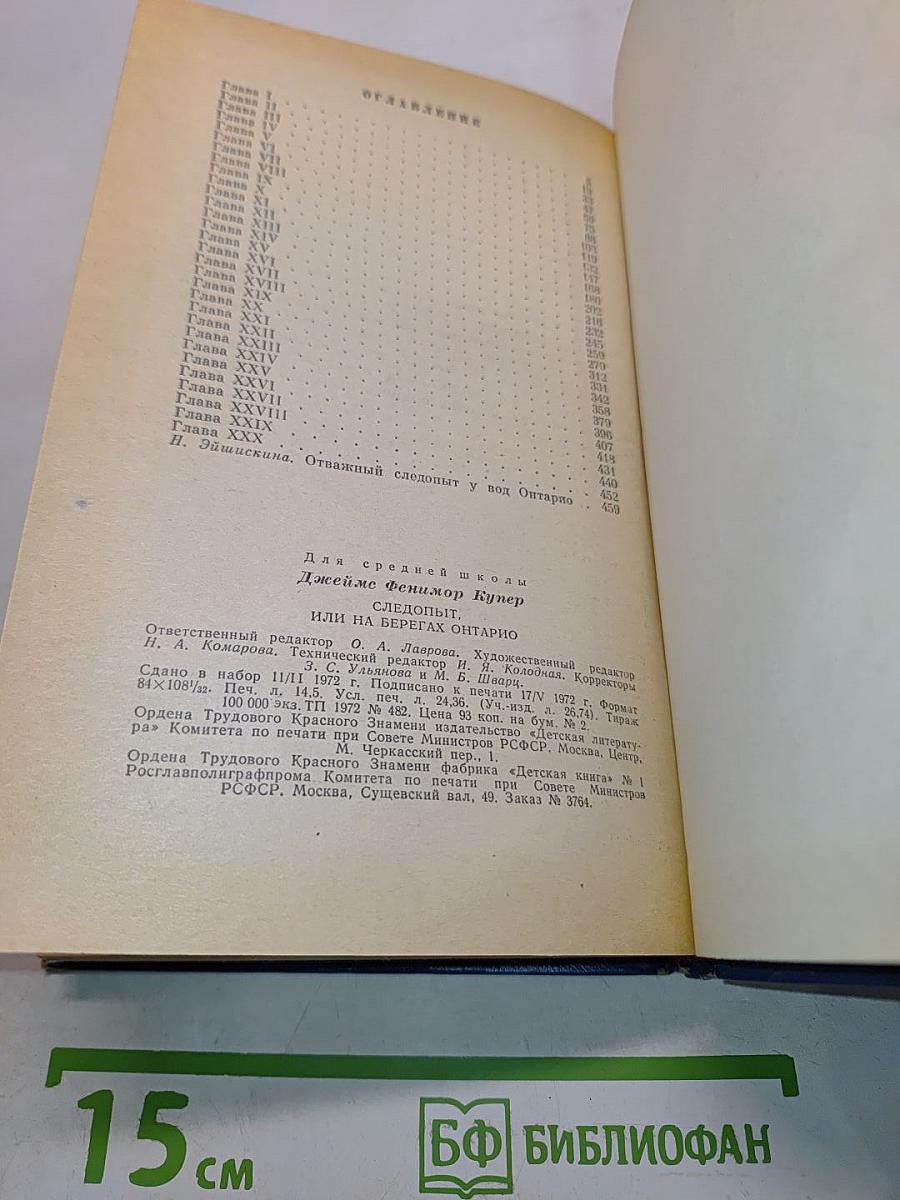 ОГЛАВЛЕНИЕ
Глава I
Глава II
Глава III
Глава IV 47
Глава V 59
Глава VI 75
Глава VII 88
Глава VIII 103
Глава IX 119
Глава X 132
Глава XI 147
Глава XII 168
Глава XIII 180
Глава XIV 202
Глава XV 216
Глава XVI 232
Глава XVII 245
Глава XVIII 259
Глава XIX 279
Глава XX 312
Глава XXI 331
Глава XXII 342
Глава XXIII 358
Глава XXIV 379
Глава XXV 396
Глава XXVI 407
Глава XXVII 418
Глава XXVIII 431
Глава XXIX 440
Глава XXX 452
Н. Эйшискина. Отважный следопыт у вод Онтарио . 459
Для средней школы
Джеймс Фенимор Купер
СЛЕДОПЫТ,
ИЛИ НА БЕРЕГАХ ОНТАРИО
Ответственный редактор О. А. Лаврова. Художественный редактор
Н. А. Комарова. Технический редактор И. Я. Колодная. Корректоры
З. С. Ульянова и М. Б. Шварц.
Сдано в набор 11/II 1972 г. Подписано к печати 17/V 1972 г. Формат
84×108¹/₃₂. Печ. л. 14,5. Усл. печ. л. 24,36. (Уч.-изд. л. 26,74). Тираж
100 000 экз. ТП 1972 № 482. Цена 93 коп. на бум. № 2.
Ордена Трудового Красного Знамени издательство «Детская литерату-
ра» Комитета по печати при Совете Министров РСФСР. Москва, Центр,
М. Черкасский пер., 1.
Ордена Трудового Красного Знамени фабрика «Детская книга» № 1
Росглавполиграфпрома Комитета по печати при Совете Министров
РСФСР. Москва, Сущевский вал, 49. Заказ № 3764.
15 см
БФ БИБЛИОФАН